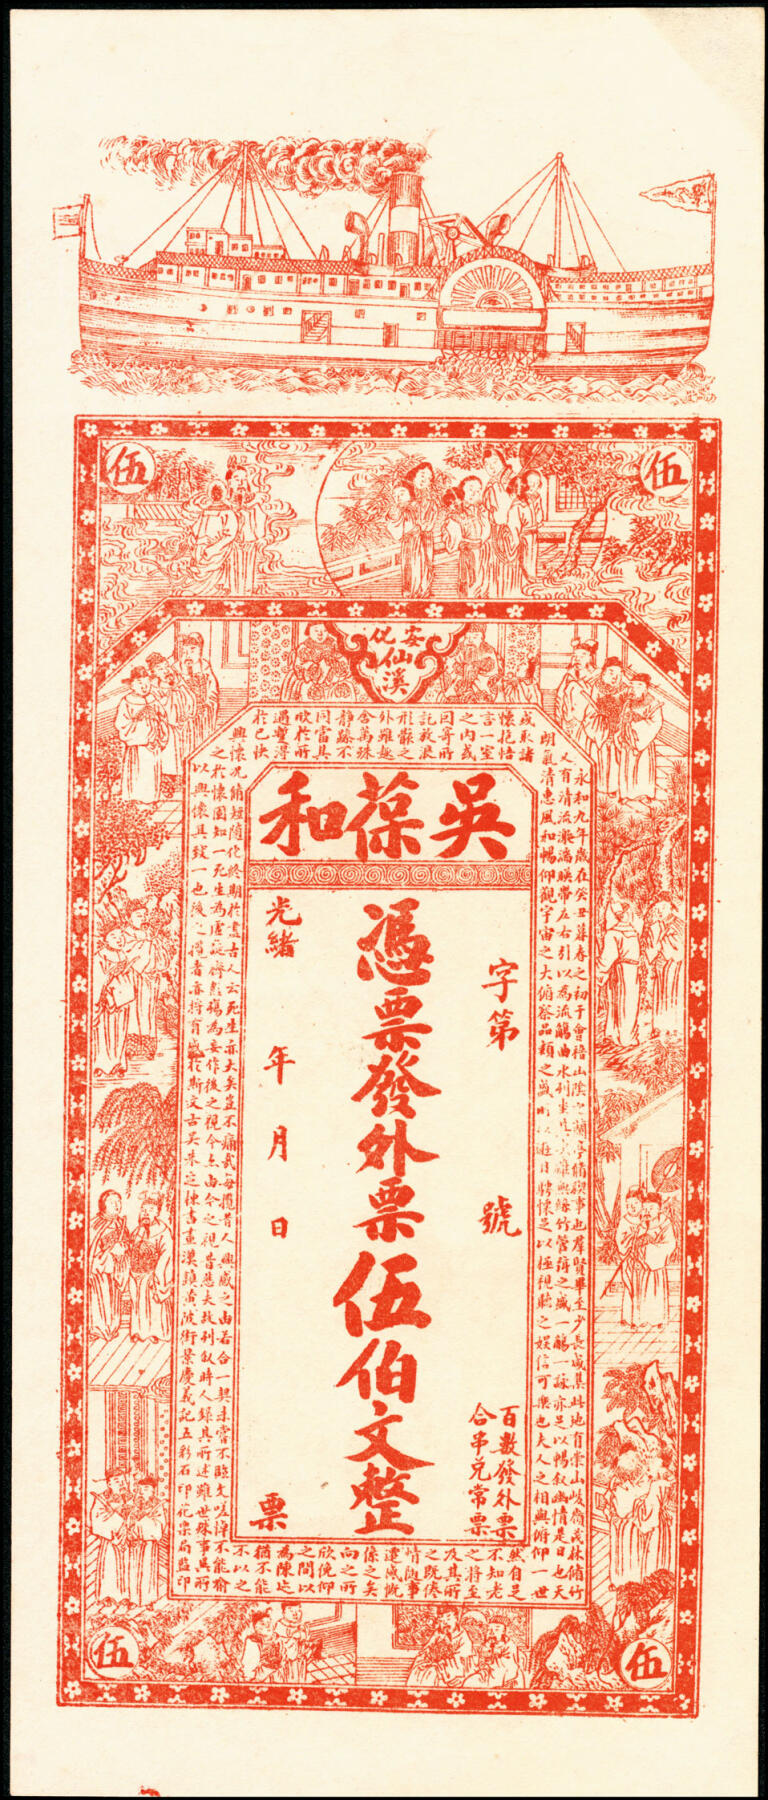 伍
伍
安化
仙
溪
吳葆和
字第 號
憑票發外票伍伯文整
百數發外票
合串兌常票
光緒 年 月 日
票
永和九年歲在癸丑暮春之初于會稽山陰之蘭亭脩禊事也羣賢畢至少長咸集此地有崇山峻嶺茂林脩竹
又有清流激湍暎帶左右引以為流觴曲水列坐其次雖無絲竹管弦之盛一觴一詠亦足以暢敘幽情是日也天
朗氣清惠風和暢仰觀宇宙之大俯察品類之盛所以遊目騁懷足以極視聽之娛信可樂也夫人之相與俯仰一世
或取諸
懷抱悟
言一室
之內或
因寄所
託放浪
形骸之
外雖趣
舍萬殊
靜躁不
同當其
欣於所
遇蹔得
於己快
然自足
不知老
之將至
及其所
之既倦
情隨事
遷感慨
係之矣
向之所
欣俛仰
之間以
為陳迹
猶不能
不以之
興懷況脩短隨化終期於盡古人云死生亦大矣豈不痛哉每攬昔人興感之由若合一契未嘗不臨文嗟悼不能喻
之於懷固知一死生為虛誕齊彭殤為妄作後之視今亦由今之視昔悲夫故列敘時人錄其所述雖世殊事異所
以興懷其致一也後之攬者亦將有感於斯文古吳朱定棟書畫漢鎮黃陂街景慶義記五彩石印花票局監印
伍
伍